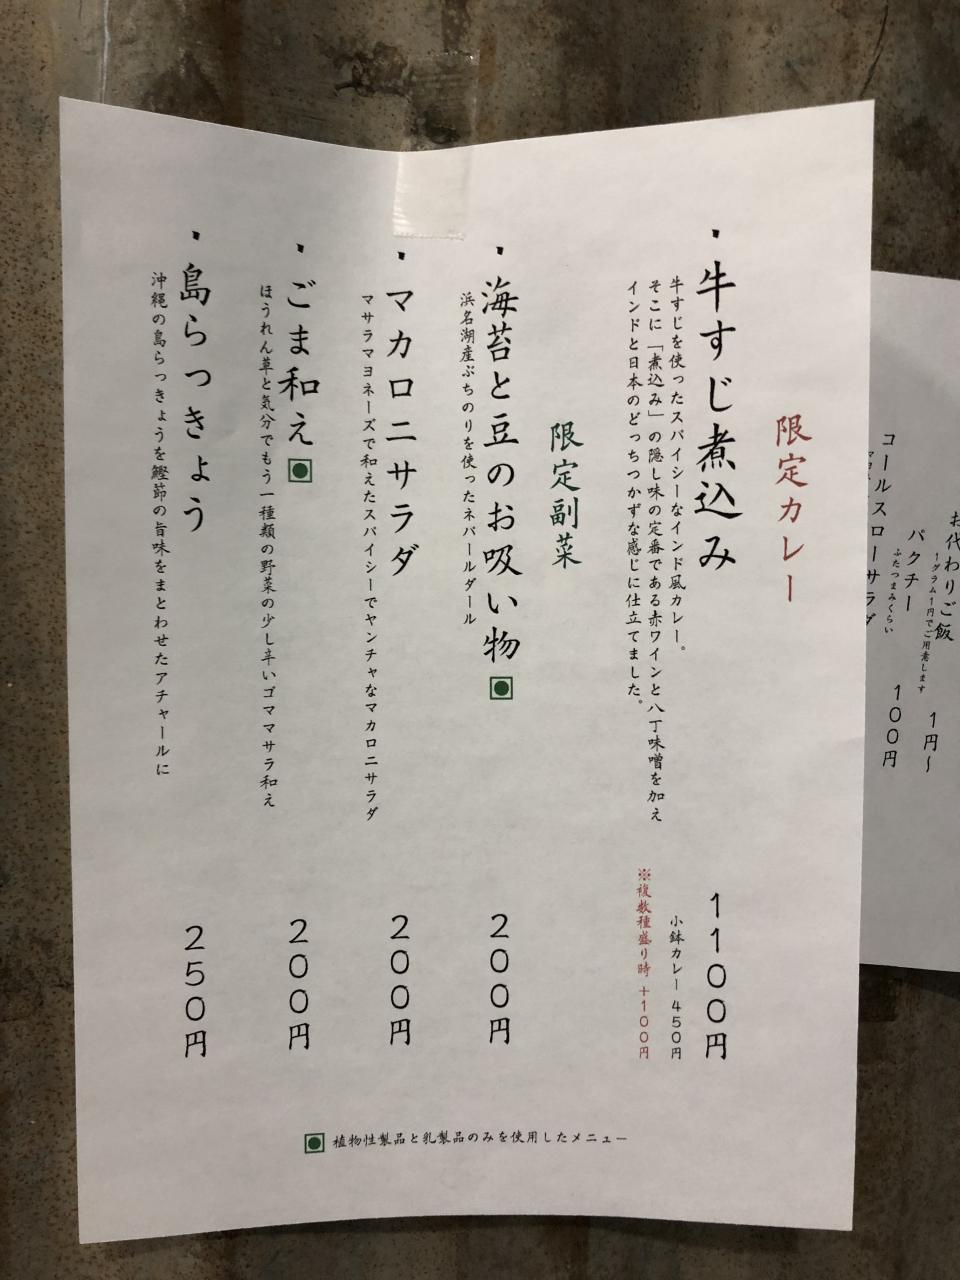 お代わりご飯
1グラム1円でご用意します
1円~
パクチー
ふたつまみくらい
100円
コールスローサラダ
限定カレー
・牛すじ煮込み
1100円
牛すじを使ったスパイシーなインド風カレー。
小鉢カレー 450円
そこに「煮込み」の隠し味の定番である赤ワインと八丁味噌を加え
インドと日本のどっちつかずな感じに仕立てました。
※複数種盛り時 +100円
限定副菜
・海苔と豆のお吸い物
200円
浜名湖産ぶちのりを使ったネパールダール
・マカロニサラダ
200円
マサラマヨネーズで和えたスパイシーでヤンチャなマカロニサラダ
・ごま和え
200円
ほうれん草と気分でもう一種類の野菜の少し辛いゴママサラ和え
・島らっきょう
250円
沖縄の島らっきょうを鰹節の旨味をまとわせたアチャールに
植物性製品と乳製品のみを使用したメニュー